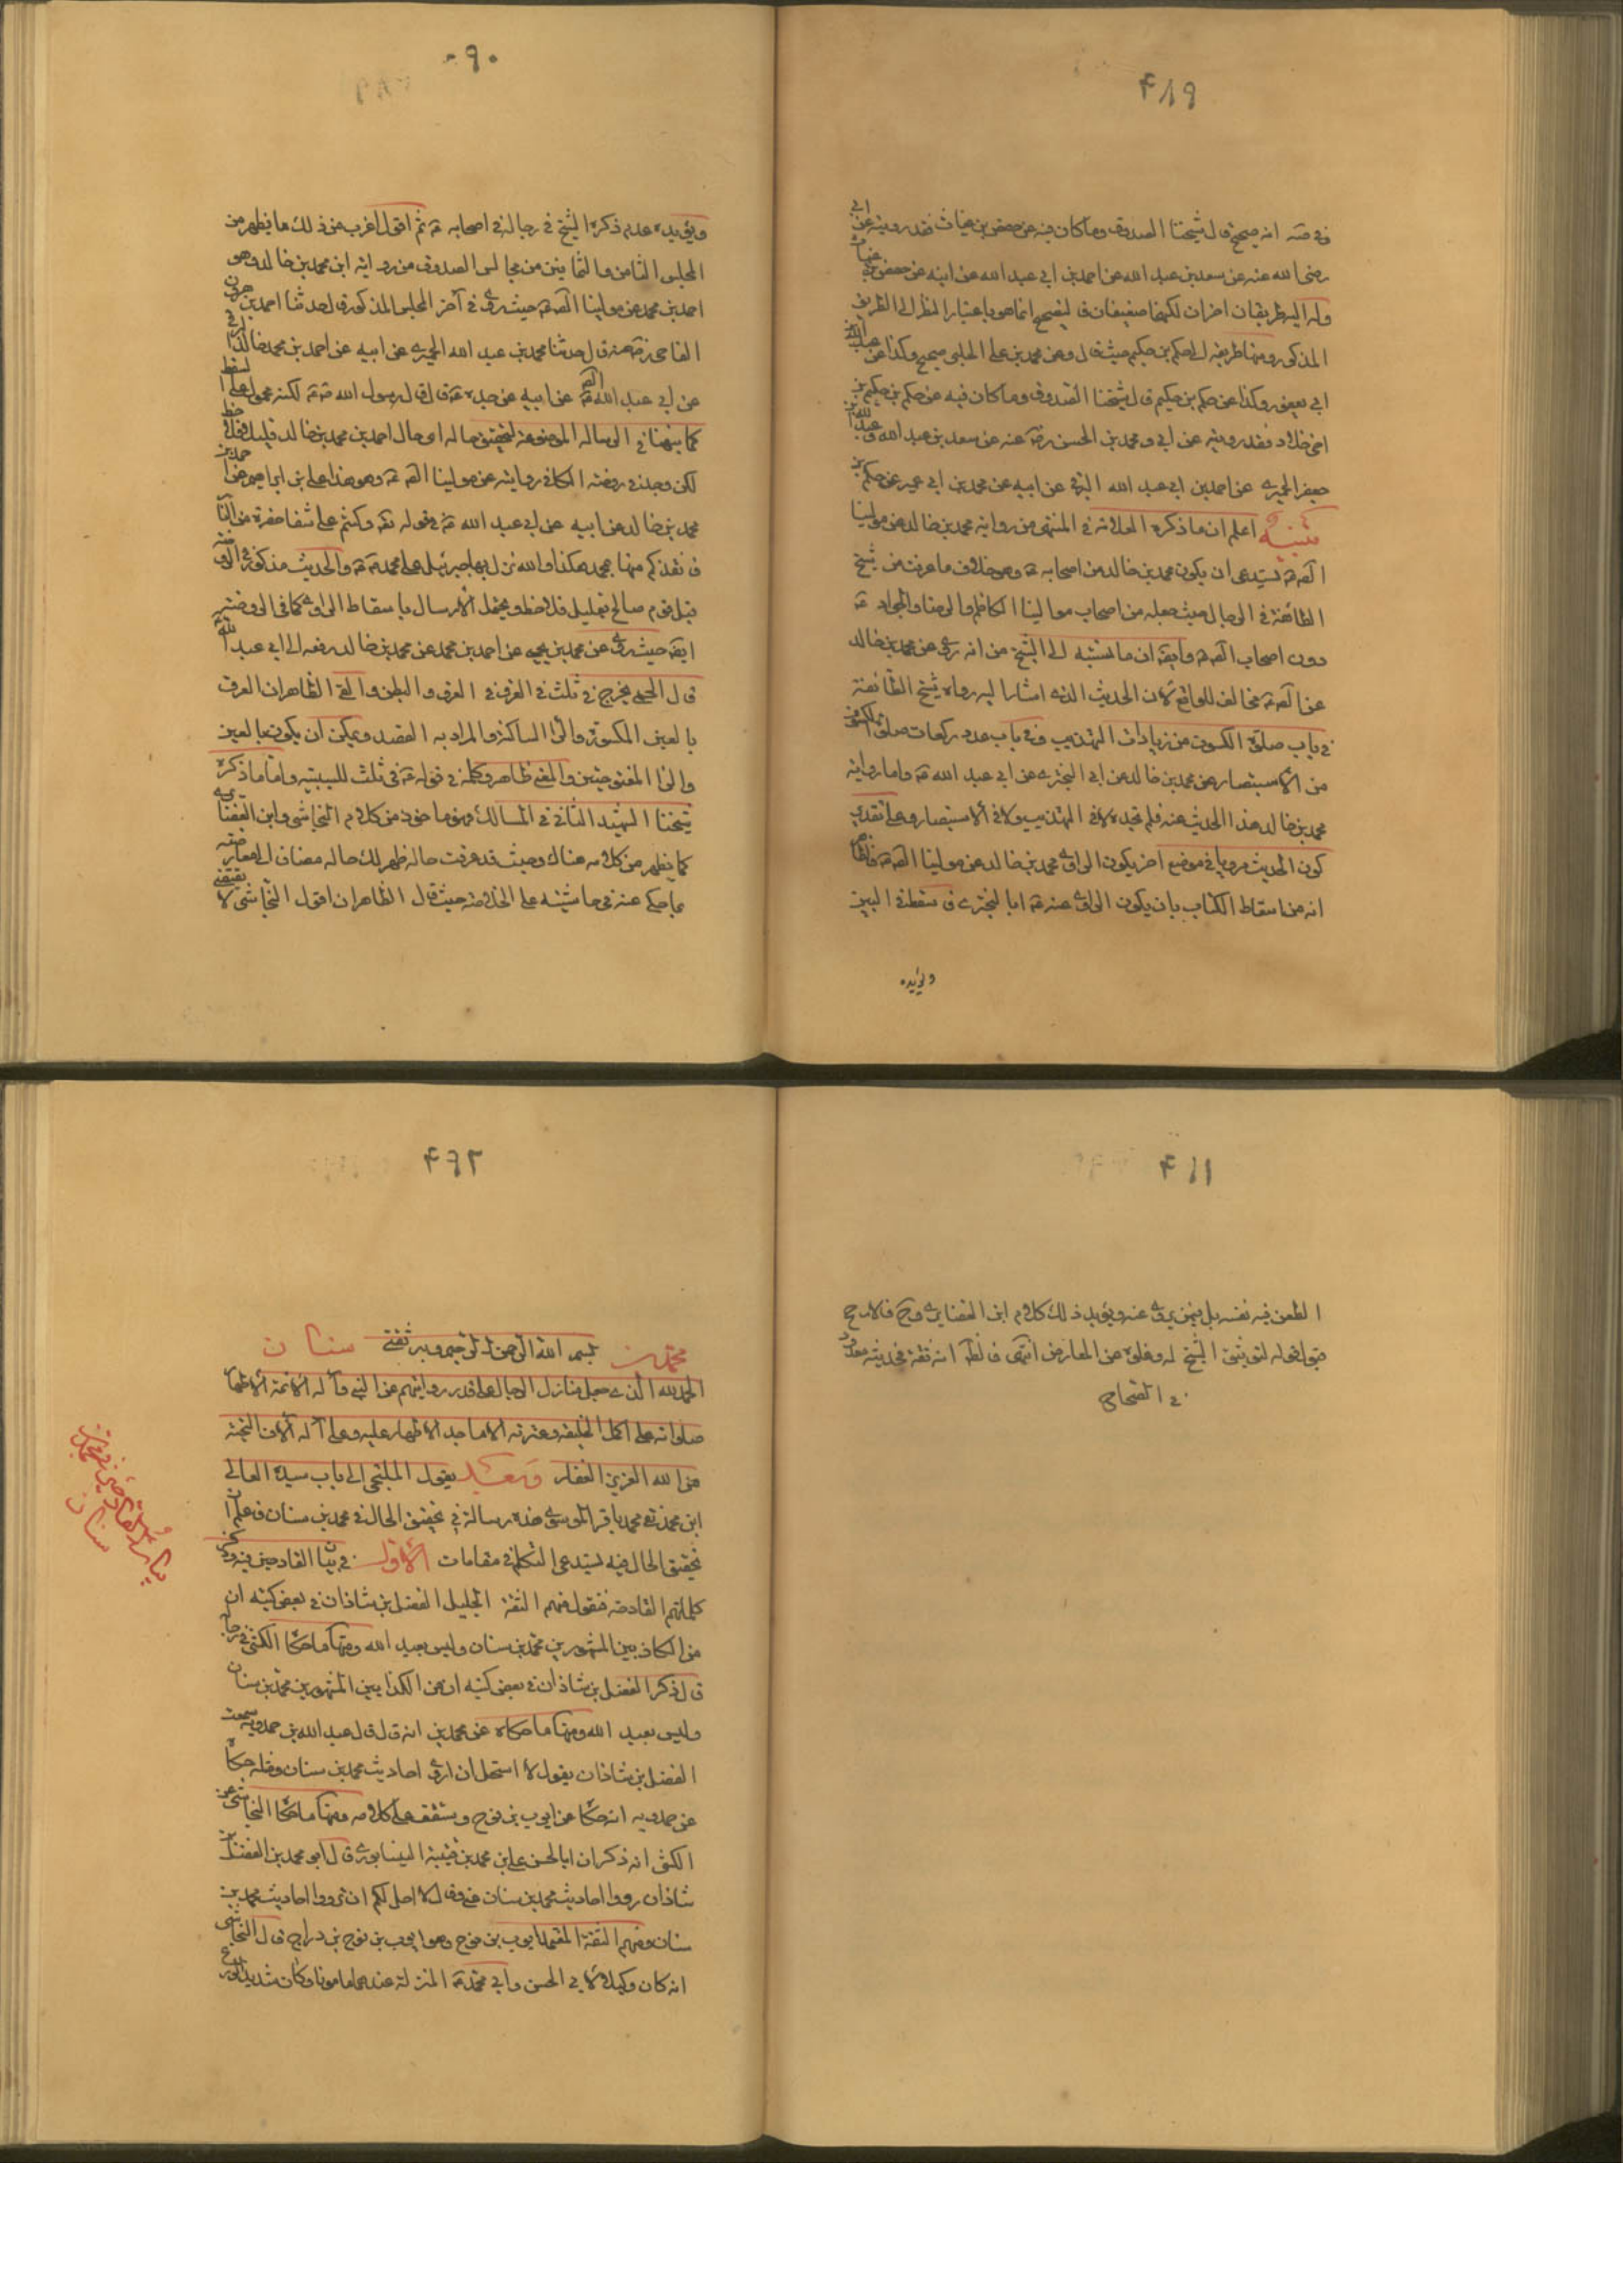 ۴۸۹
في صه انه صحيح قال شيخنا الصدوق وما كان فيه عن حفص بن غياث فقد رويته عن ابي
رضى الله عنه عن سعد بن عبد الله عن احمد بن ابي عبد الله عن ابيه عن حفص بن غياث
وله اليه طريقان اخران لكنهما ضعيفان فالتصحيح انما هو باعتبار النظر الى الطريق
المذكور ومنها طريقه الى حكم بن حكيم حيث قال وعن محمد بن على الحلبى صحيح وكذا عن عبد الله بن
ابي يعفور وكذا عن حكم بن حكيم قال شيخنا الصدوق وما كان فيه عن حكم بن حكيم بن
اخى خلاد فقد رويته عن ابي و محمد بن الحسن رضه عنه عن سعد بن عبد الله وعبد الله بن
جعفر الحميرى عن احمد بن ابي عبد الله البرقى عن ابيه عن محمد بن ابي عمير عن حكم بن
تنبيه اعلم ان ما ذكره العلامة في المنتهى من رواية محمد بن خالد عن مولينا
الصه ع يستدعى ان يكون محمد بن خالد من اصحابه ع وهو خلاف ما عرفت من شيخ
الطائفة في الرجال حيث جعله من اصحاب موالينا الكاظم والرضا والجواد ع
دون اصحاب الصه ع وايضا ان ما نسبه الى الشيخ من انه روى عن محمد بن خالد
عن الصه ع مخالف للواقع لان الحديث الذى اشار اليه رواه شيخ الطائفة
في باب صلوة الكسوف من زيادات التهذيب وفي باب عدد ركعات صلوة الكسوف
من الاستبصار عن محمد بن خالد عن ابي البخترى عن ابي عبد الله ع واما رواية
محمد بن خالد هذا الحديث عنه فلم نجده لا في التهذيب ولا في الاستبصار وعلى تقدير
كون الحديث مرويا في موضع اخر يكون الراوى محمد بن خالد عن مولينا الصه ع فالظاهر
انه من اسقاط الكتاب بان يكون الراوى عنه ع ابا البخترى فسقط في البين
ويؤيده
۹۰
ويؤيده عدم ذكره الشيخ في رجاله في اصحابه ع ثم اقول اغرب من ذلك ما يظهر من
المجلس الثامن والثمانين من مجالس الصدوق من رواية ابن محمد بن خالد وهو
احمد بن محمد عن مولينا الصه ع حيث روى في آخر المجلس المذكور قال حدثنا احمد بن هرون
الفامى رضه عنه قال حدثنا محمد بن عبد الله الحميرى عن ابيه عن احمد بن محمد خالد البرقى
عن ابي عبد الله الصه ع عن ابيه عن جده ع قال قال رسول الله ص لكنه محمول على السقط
كما نبهنا في الرساله الموضوعة لتحقيق حاله اى حال احمد بن محمد بن خالد قليلاحظ
لكن وجدنا في روضة الكافى روايته عن مولينا الصه ع وهو هذا على بن ابراهيم عن احمد بن
محمد بن خالد عن ابيه عن ابي عبد الله ع في قوله تعه وكنتم على شفا حفرة من النار
فانقذكم منها بمحمد هكذا والله نزل بها جبرئيل على محمد ص والحديث مذكور في الروضة
قبل قوم صالح بقليل فلاحظ ويحتمل الارسال باسقاط الراوى كما في الروضة
ايضا حيث روى عن محمد بن يحيى عن احمد بن محمد عن محمد بن خالد رفعه الى ابي عبد الله
قال الحمى يخرج في ثلث في العرق و البطن والقئ الظاهر ان العرق
بالعين المكسورة والراء الساكنة والمراد به الفصد ويمكن ان يكون بالعين
والراء المفتوحتين والمعنى ظاهر وكلمة في قوله ع في ثلث للسببيه واما ما ذكره
شيخنا الشهيد الثانى في المسالك فهو ماخوذ من كلام النجاشى وابن الغضايرى
كما يظهر من كلامه هناك وحيث قد عرفت حاله ظهر لك حاله مضافا الى معارضته
بما حكى عنه في حاشيته على الخلاصة حيث قال الظاهر ان قول النجاشى لا يقتضى
۴۹۱
الطعن فيه نفسه بل فيمن يروى عنه ويؤيد ذلك كلام ابن الغضايرى وح فالارجح
قبول قوله لتوثيق الشيخ له وخلوه عن المعارض انتهى فالظه انه ثقة فحديثه معدود
في الصحاح
۴۹۲
محمد بن بسم الله الرحمن الرحيم وبه ثقتى سنان
الحمد لله الذى جعل منازل الرجال على قدر روايتهم عن النبي وآله الائمة الاطهار
صلواته على اكمل الخليقة وعترته الاماجد الاطهار عليه وعلى آله آلاف التحية
من الله العزيز الغفار وبعد يقول الملتجى الى باب سيده العالى
ابن محمد نقى محمد باقر الموسوى هذه رسالة في تحقيق الحال في محمد بن سنان فاعلم ان
تحقيق الحال فيه يستدعى التكلم في مقامات الاول في بيان القادحين فيه وذكر
كلماتهم القادحة فنقول فمنهم الثقة الجليل الفضل بن شاذان في بعض كتبه ان
من الكاذبين المشهورين محمد بن سنان وليس بعبد الله ومنها ما حكا الكشى في رجاله
قال ذكر الفضل بن شاذان في بعض كتبه ان من الكذابين المشهورين محمد بن سنان
وليس بعبد الله ومنها ما حكاه عن محمد بن انه قال قال عبد الله بن حمدويه سمعت
الفضل بن شاذان يقول لا استحل ان اروى احاديث محمد بن سنان ومثله حكاه
عن حمدويه انه حكا عن ايوب بن نوح وستقف على كلامه ومنها ما حكا النجاشى عن
الكشى انه ذكر ان ابا الحسن على بن محمد بن قتيبة النيسابورى قال ابو محمد بن الفضل بن
شاذان رووا احاديث محمد بن سنان عنى وقال لا احل لكم ان ترووا احاديث محمد بن
سنان ومنهم الثقة المعتمد ايوب بن نوح وهو ايوب بن نوح بن دراج قال النجاشى
انه كان وكيلا لابى الحسن وابى محمد ع المنزلة عندهما مامونا وكان شديد الورع
بيان القادحين في محمد بن
سنان